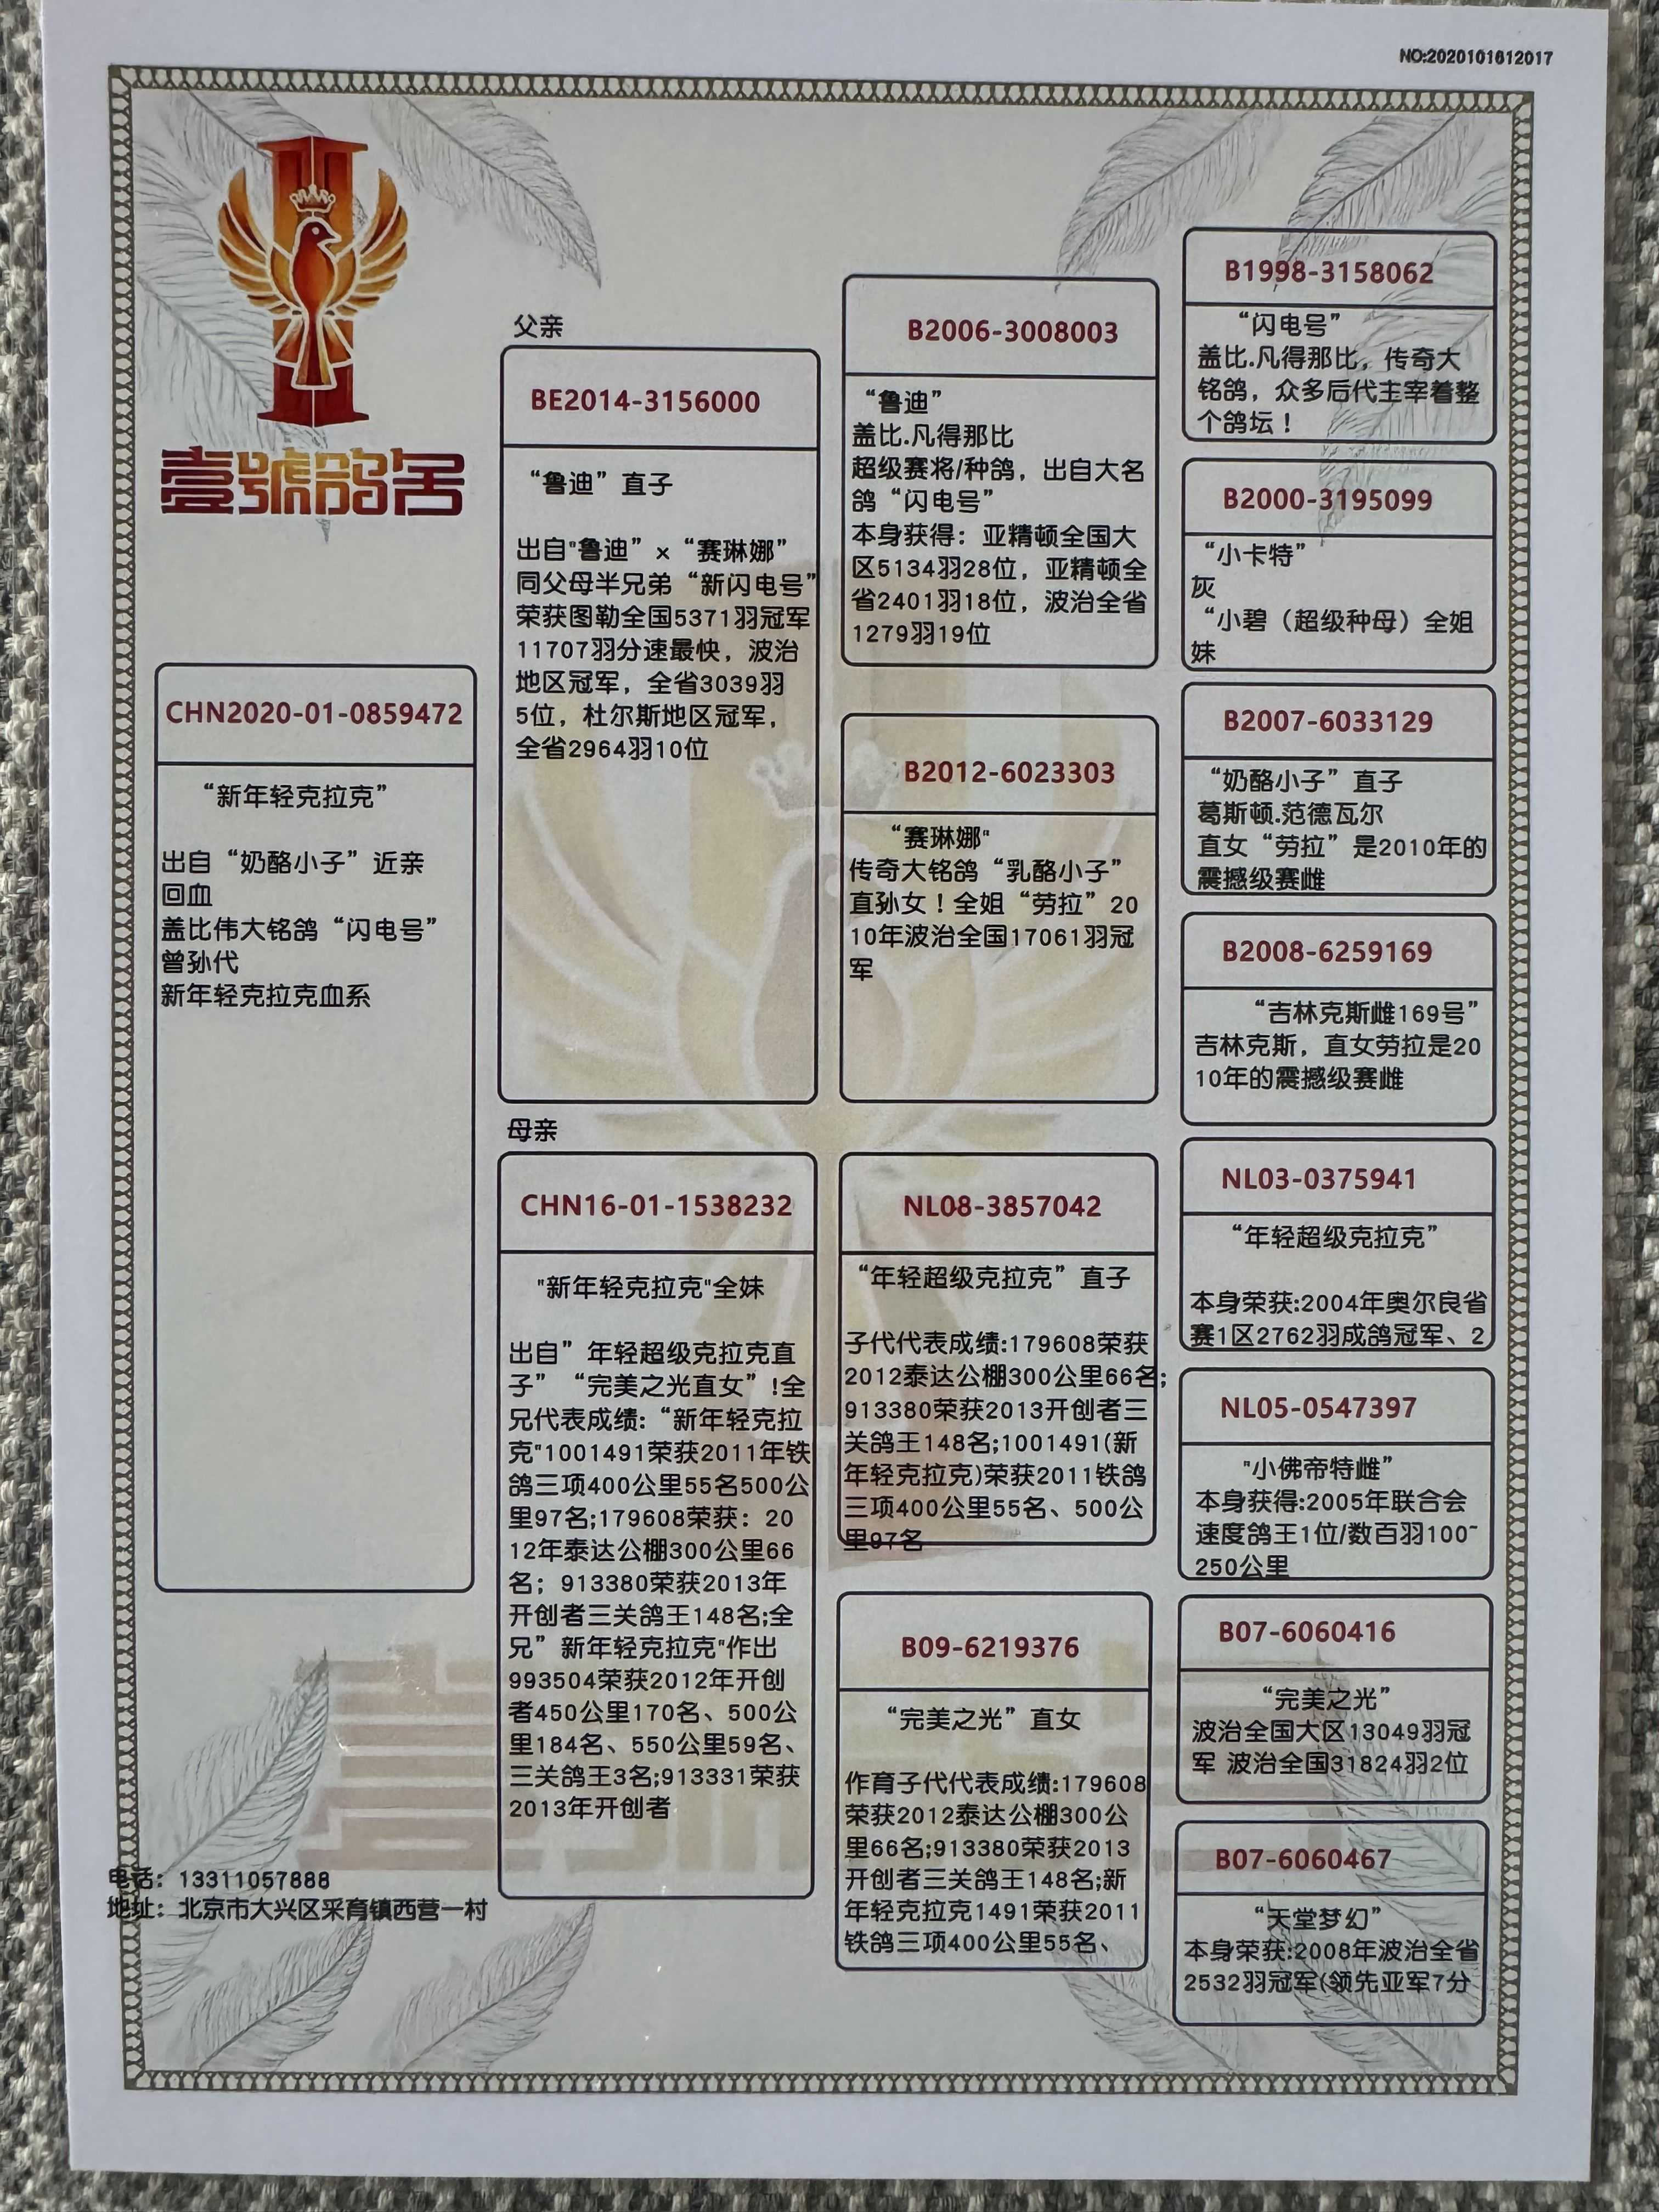 NO:2020101612017
壹號鸽舍
CHN2020-01-0859472
“新年轻克拉克”
出自“奶酪小子”近亲
回血
盖比伟大铭鸽“闪电号”
曾孙代
新年轻克拉克血系
父亲
BE2014-3156000
“鲁迪”直子
出自"鲁迪”×“赛琳娜”
同父母半兄弟“新闪电号”
荣获图勒全国5371羽冠军
11707羽分速最快，波治
地区冠军，全省3039羽
5位，杜尔斯地区冠军，
全省2964羽10位
母亲
CHN16-01-1538232
"新年轻克拉克"全妹
出自”年轻超级克拉克直
子”“完美之光直女”!全
兄代表成绩:“新年轻克拉
克"1001491荣获2011年铁
鸽三项400公里55名500公
里97名;179608荣获：20
12年泰达公棚300公里66
名；913380荣获2013年
开创者三关鸽王148名;全
兄”新年轻克拉克"作出
993504荣获2012年开创
者450公里170名、500公
里184名、550公里59名、
三关鸽王3名;913331荣获
2013年开创者
B2006-3008003
“鲁迪”
盖比.凡得那比
超级赛将/种鸽，出自大名
鸽“闪电号”
本身获得：亚精顿全国大
区5134羽28位，亚精顿全
省2401羽18位，波治全省
1279羽19位
B2012-6023303
“赛琳娜"
传奇大铭鸽“乳酪小子”
直孙女！全姐“劳拉”20
10年波治全国17061羽冠
军
NL08-3857042
“年轻超级克拉克”直子
子代代表成绩:179608荣获
2012泰达公棚300公里66名;
913380荣获2013开创者三
关鸽王148名;1001491(新
年轻克拉克)荣获2011铁鸽
三项400公里55名、500公
里97名
B09-6219376
“完美之光”直女
作育子代代表成绩:179608
荣获2012泰达公棚300公
里66名;913380荣获2013
开创者三关鸽王148名;新
年轻克拉克1491荣获2011
铁鸽三项400公里55名、
B1998-3158062
“闪电号”
盖比.凡得那比，传奇大
铭鸽，众多后代主宰着整
个鸽坛！
B2000-3195099
“小卡特”
灰
“小碧（超级种母）全姐
妹
B2007-6033129
“奶酪小子”直子
葛斯顿.范德瓦尔
直女“劳拉”是2010年的
震撼级赛雌
B2008-6259169
“吉林克斯雌169号”
吉林克斯，直女劳拉是20
10年的震撼级赛雌
NL03-0375941
“年轻超级克拉克”
本身荣获:2004年奥尔良省
赛1区2762羽成鸽冠军、2
NL05-0547397
"小佛帝特雌”
本身获得:2005年联合会
速度鸽王1位/数百羽100~
250公里
B07-6060416
“完美之光”
波治全国大区13049羽冠
军 波治全国31824羽2位
B07-6060467
“天堂梦幻”
本身荣获:2008年波治全省
2532羽冠军(领先亚军7分
电话：13311057888
地址：北京市大兴区采育镇西营一村